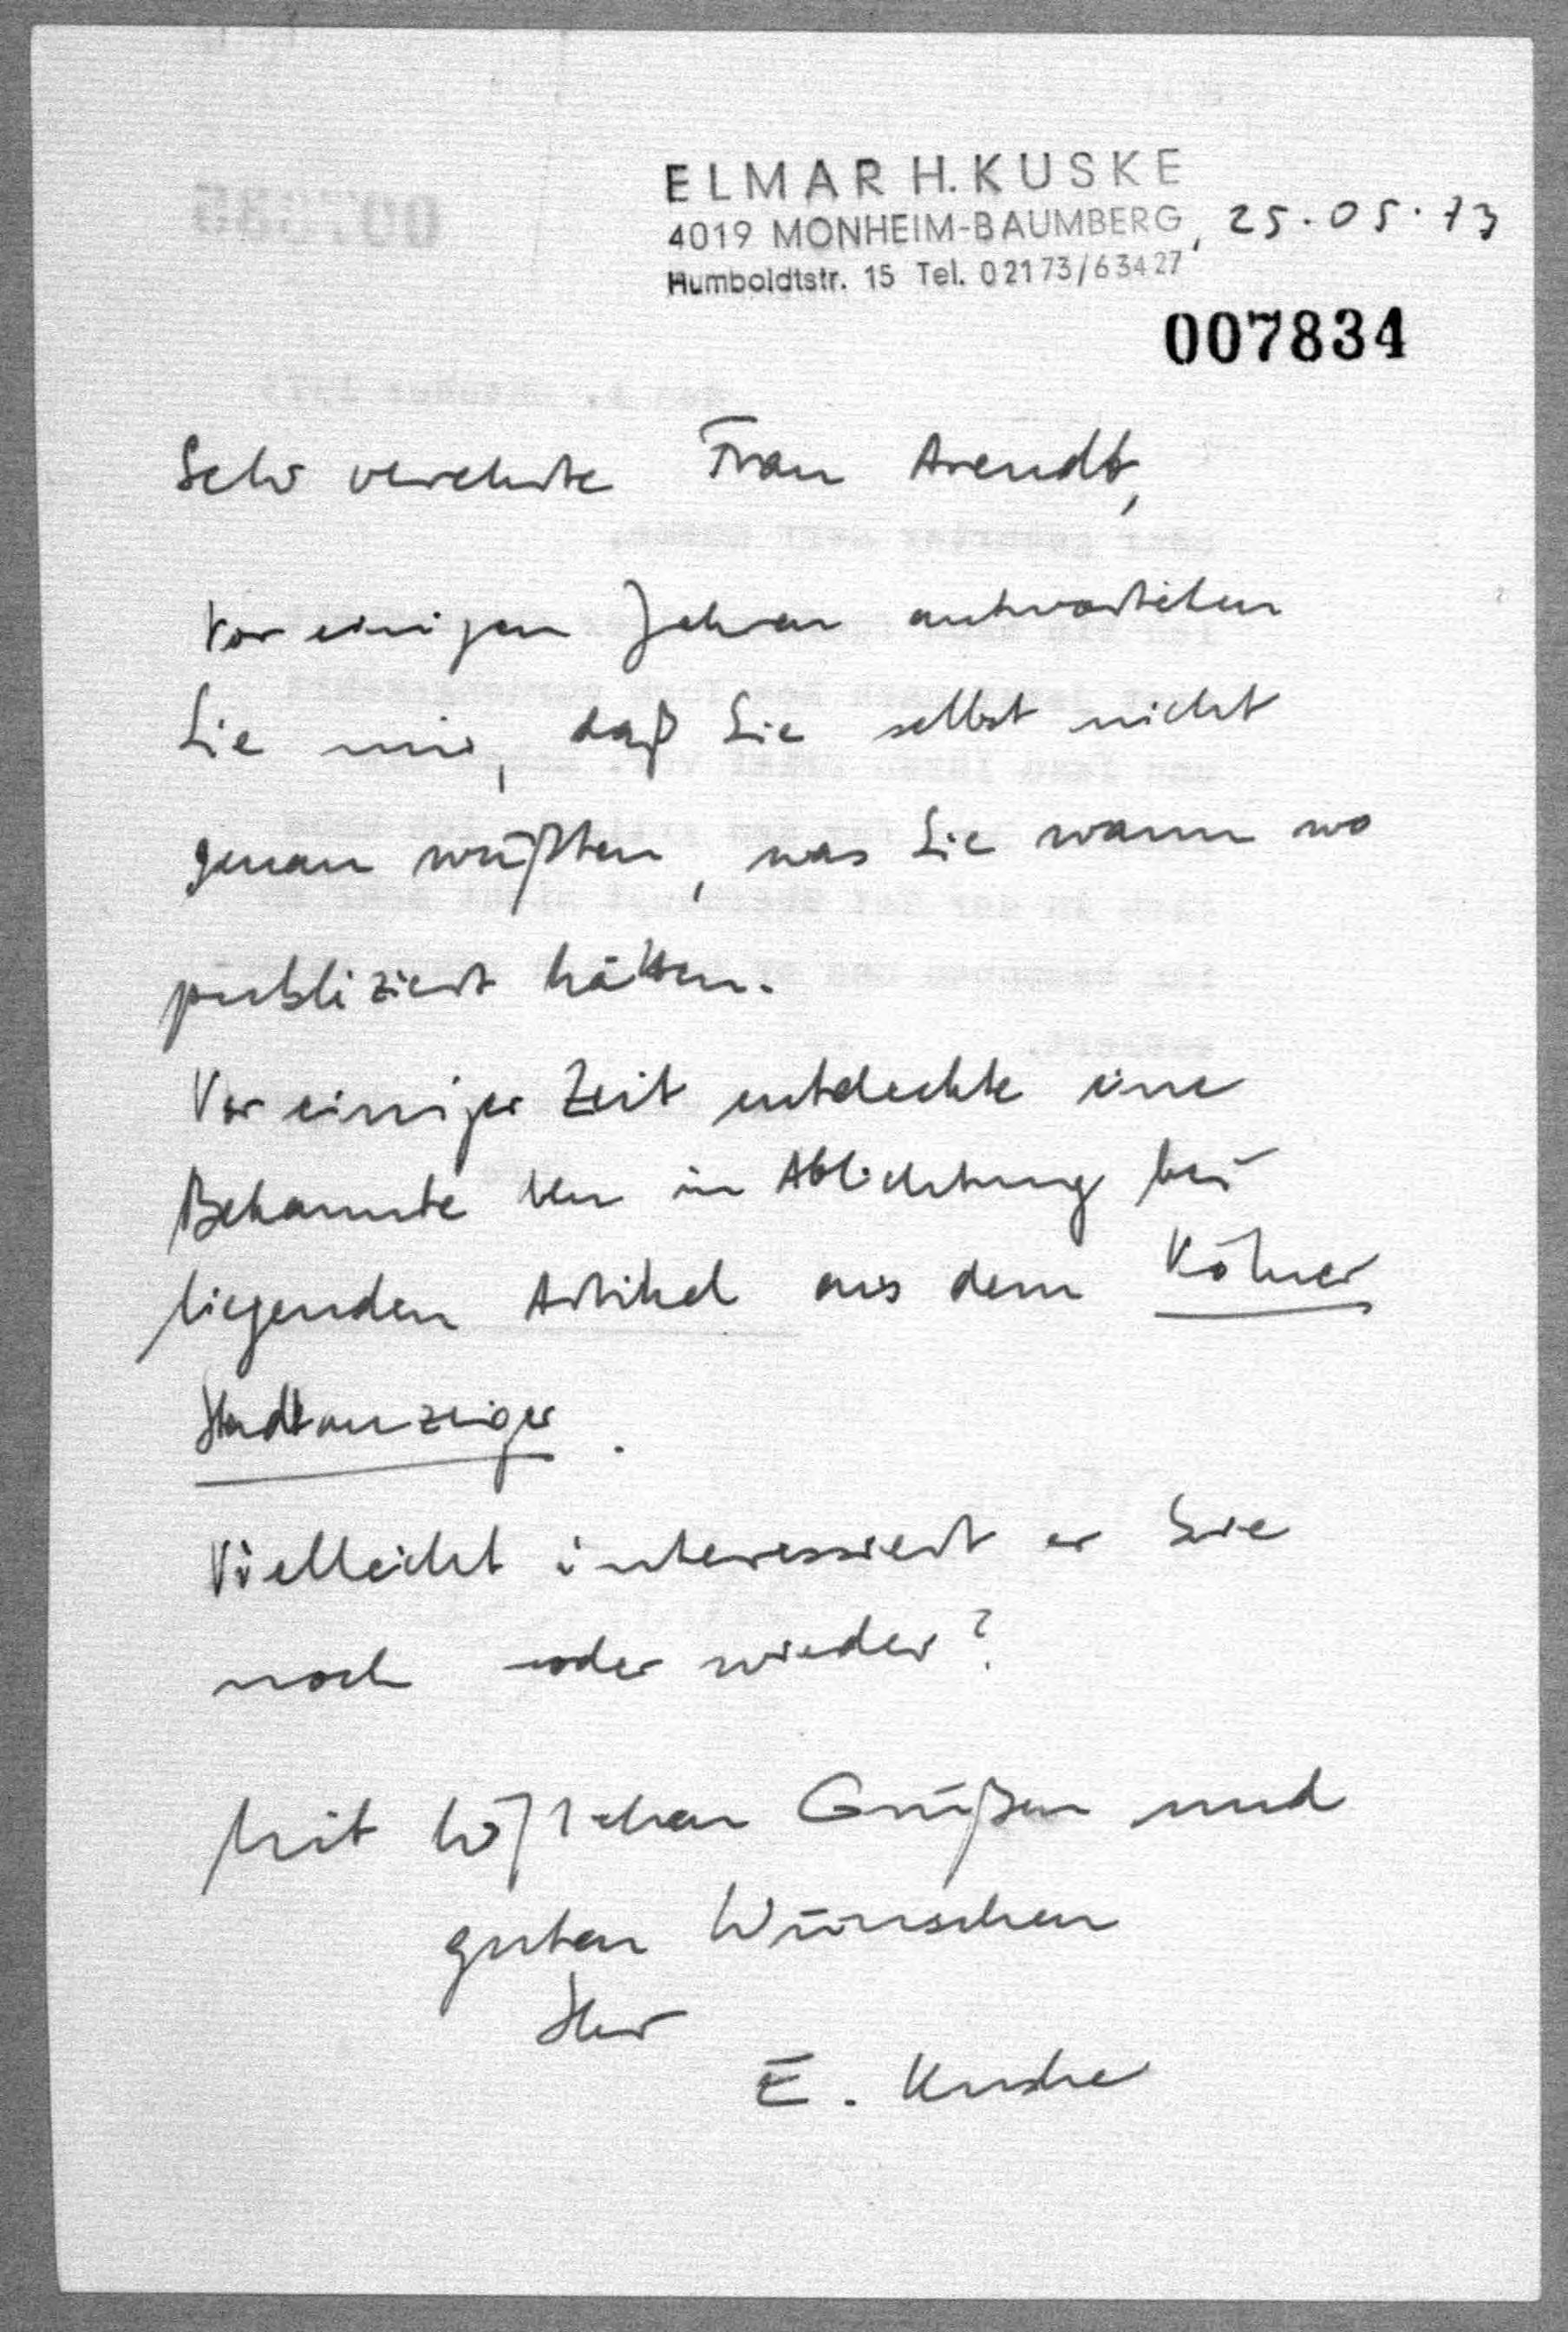 ELMAR H. KUSKE
4019 MONHEIM-BAUMBERG, 25.05.73
Humboldtstr. 15 Tel. 02173/63427
007834
Sehr verehrte Frau Arendt,
Vor einigen Jahren antworteten
Sie mir, daß Sie selbst nicht
genau wüßten, was Sie wann wo
publiziert hätten.
Vor einiger Zeit entdeckte eine
Bekannte den in Ablichtung bei
liegenden Artikel aus dem Kölner
Stadtanzeiger.
Vielleicht interessiert er Sie
noch oder wieder?
Mit höflichen Grüßen und
guten Wünschen
Ihr
E. Kuske